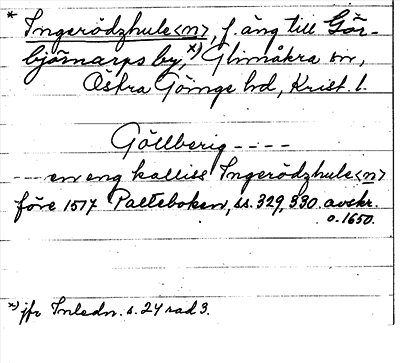 * Ingerödzhule<n>, f. äng till Gör-
björnarps by, x) Glimåkra sn,
Östra Göinge hd, Krist. l.
Göllberig - - - -
- - - en eng kalliss Ingerödzhule<n>
före 1517 Palteboken, ss. 329, 330. avskr.
o. 1650.
x) jfr Inledn. s. 24 rad 3.